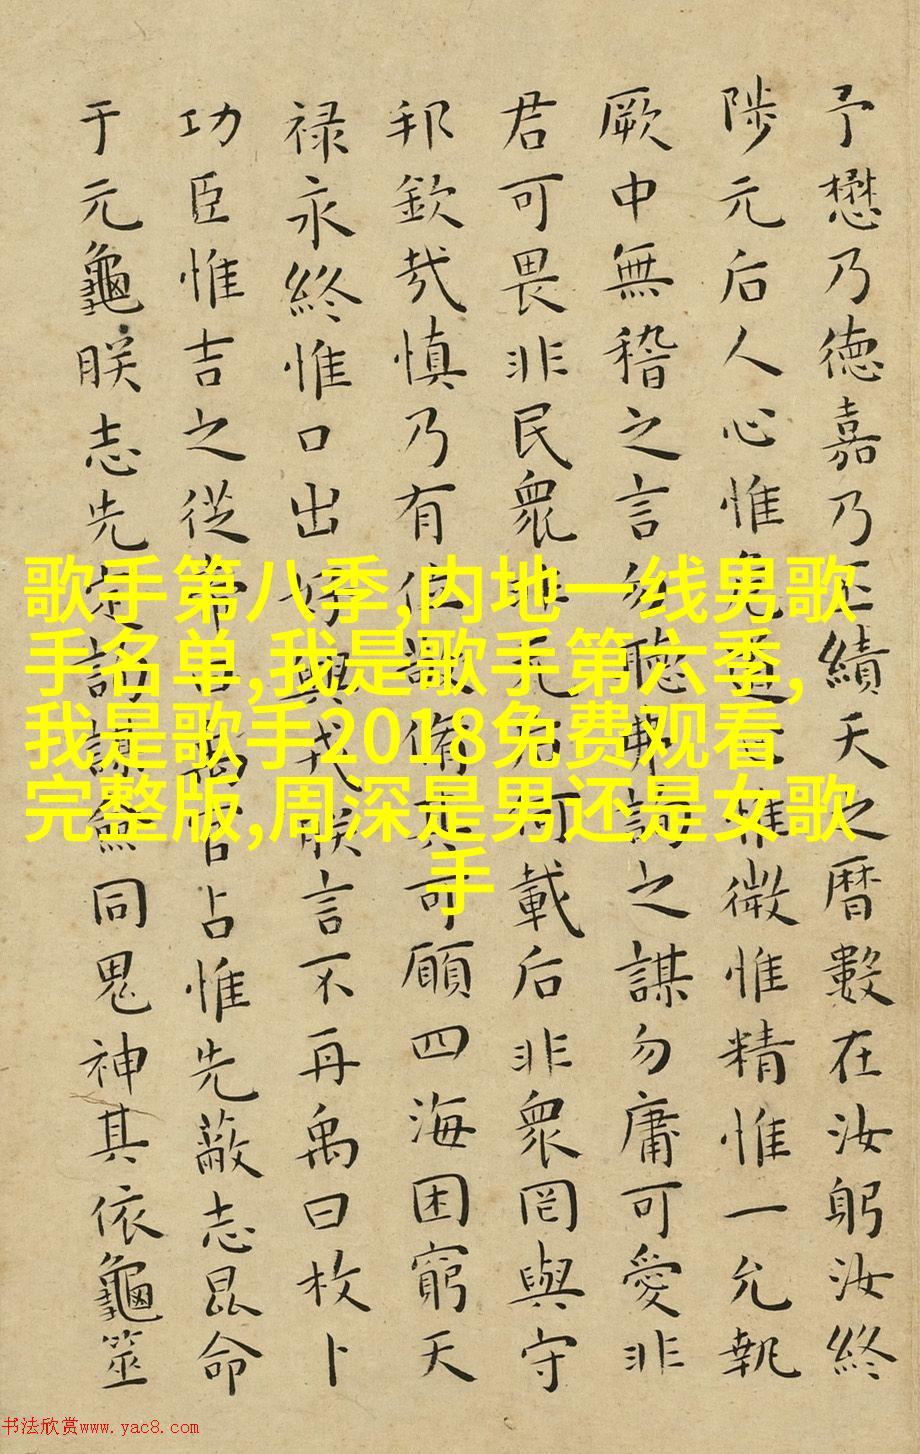 予懋乃徳嘉乃丕績天之暦數在汝躬汝終
陟元后人心惟危道心惟微惟精惟一允執
厥中無稽之言勿聽弗詢之謀勿庸可愛非
君可畏非民衆非元后何載后非衆罔與守
邦欽哉慎乃有位敬脩其可願四海困窮天
禄永終惟口出好興戎朕言不再禹曰枚卜
功臣惟吉之從帝曰禹官占惟先蔽志昆命
于元龜朕志先定詢謀僉同鬼神其依龜筮
歌手第八季,内地一线男歌
手名单,我是歌手第六季,
我是歌手2018免费观看
完整版,周深是男还是女歌
手
书法欣赏www.yac8.com